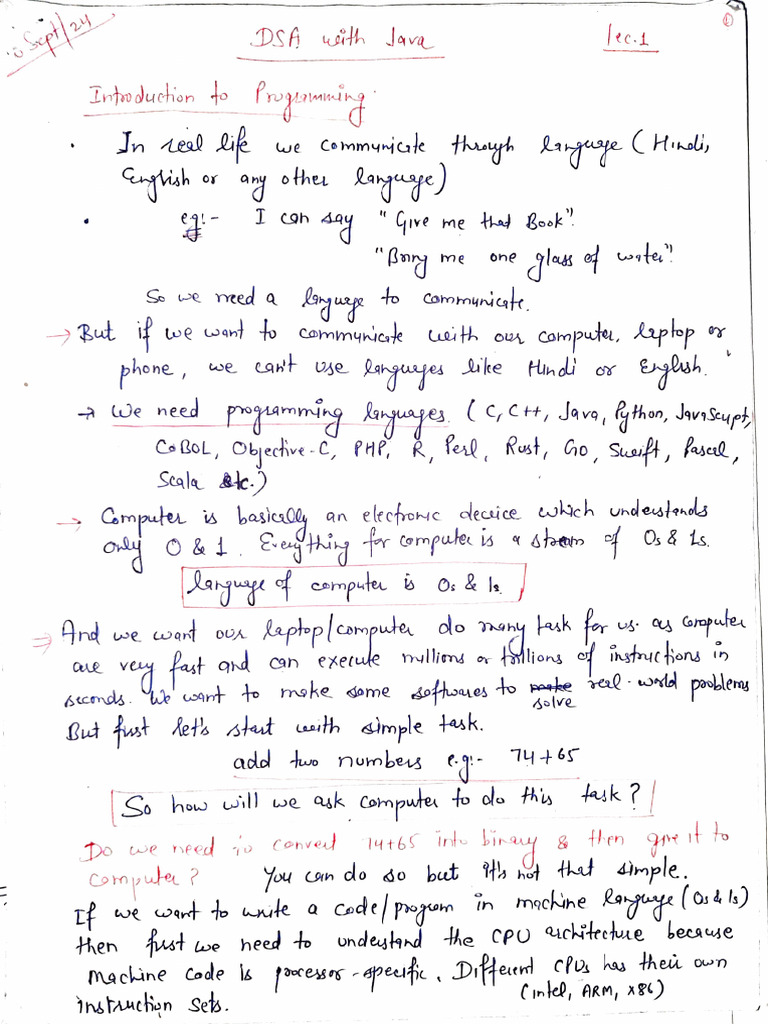 Sept/24
DSA with Java
lec.1
1
Introduction to Programming
. In real life we communicate through language (Hindi,
English or any other language)
. eg:- I can say "Give me that Book".
"Bring me one glass of water".
So we need a language to communicate.
→ But if we want to communicate with our computer, laptop or
phone, we can't use languages like Hindi or English.
→ We need programming languages. (C, C++, Java, Python, JavaScript,
COBOL, Objective-C, PHP, R, Perl, Rust, GO, Swift, Pascal,
Scala etc.)
→ Computer is basically an electronic device which understands
only 0 & 1. Everything for computer is a stream of 0s & 1s.
language of computer is 0s & 1s.
⇒ And we want our laptop/computer do many task for us. as computer
are very fast and can execute millions or trillions of instructions in
seconds. We want to make some softwares to make real-world problems
solve
But first let's start with simple task.
add two numbers e.g:- 74+65
So how will we ask computer to do this task?
Do we need to convert 74+65 into binary & then give it to
computer? You can do so but it's not that simple.
If we want to write a code/program in machine language (0s & 1s)
then first we need to understand the CPU architecture because
machine code is processor-specific. Different CPUs has their own
instruction sets. (intel, ARM, x86)